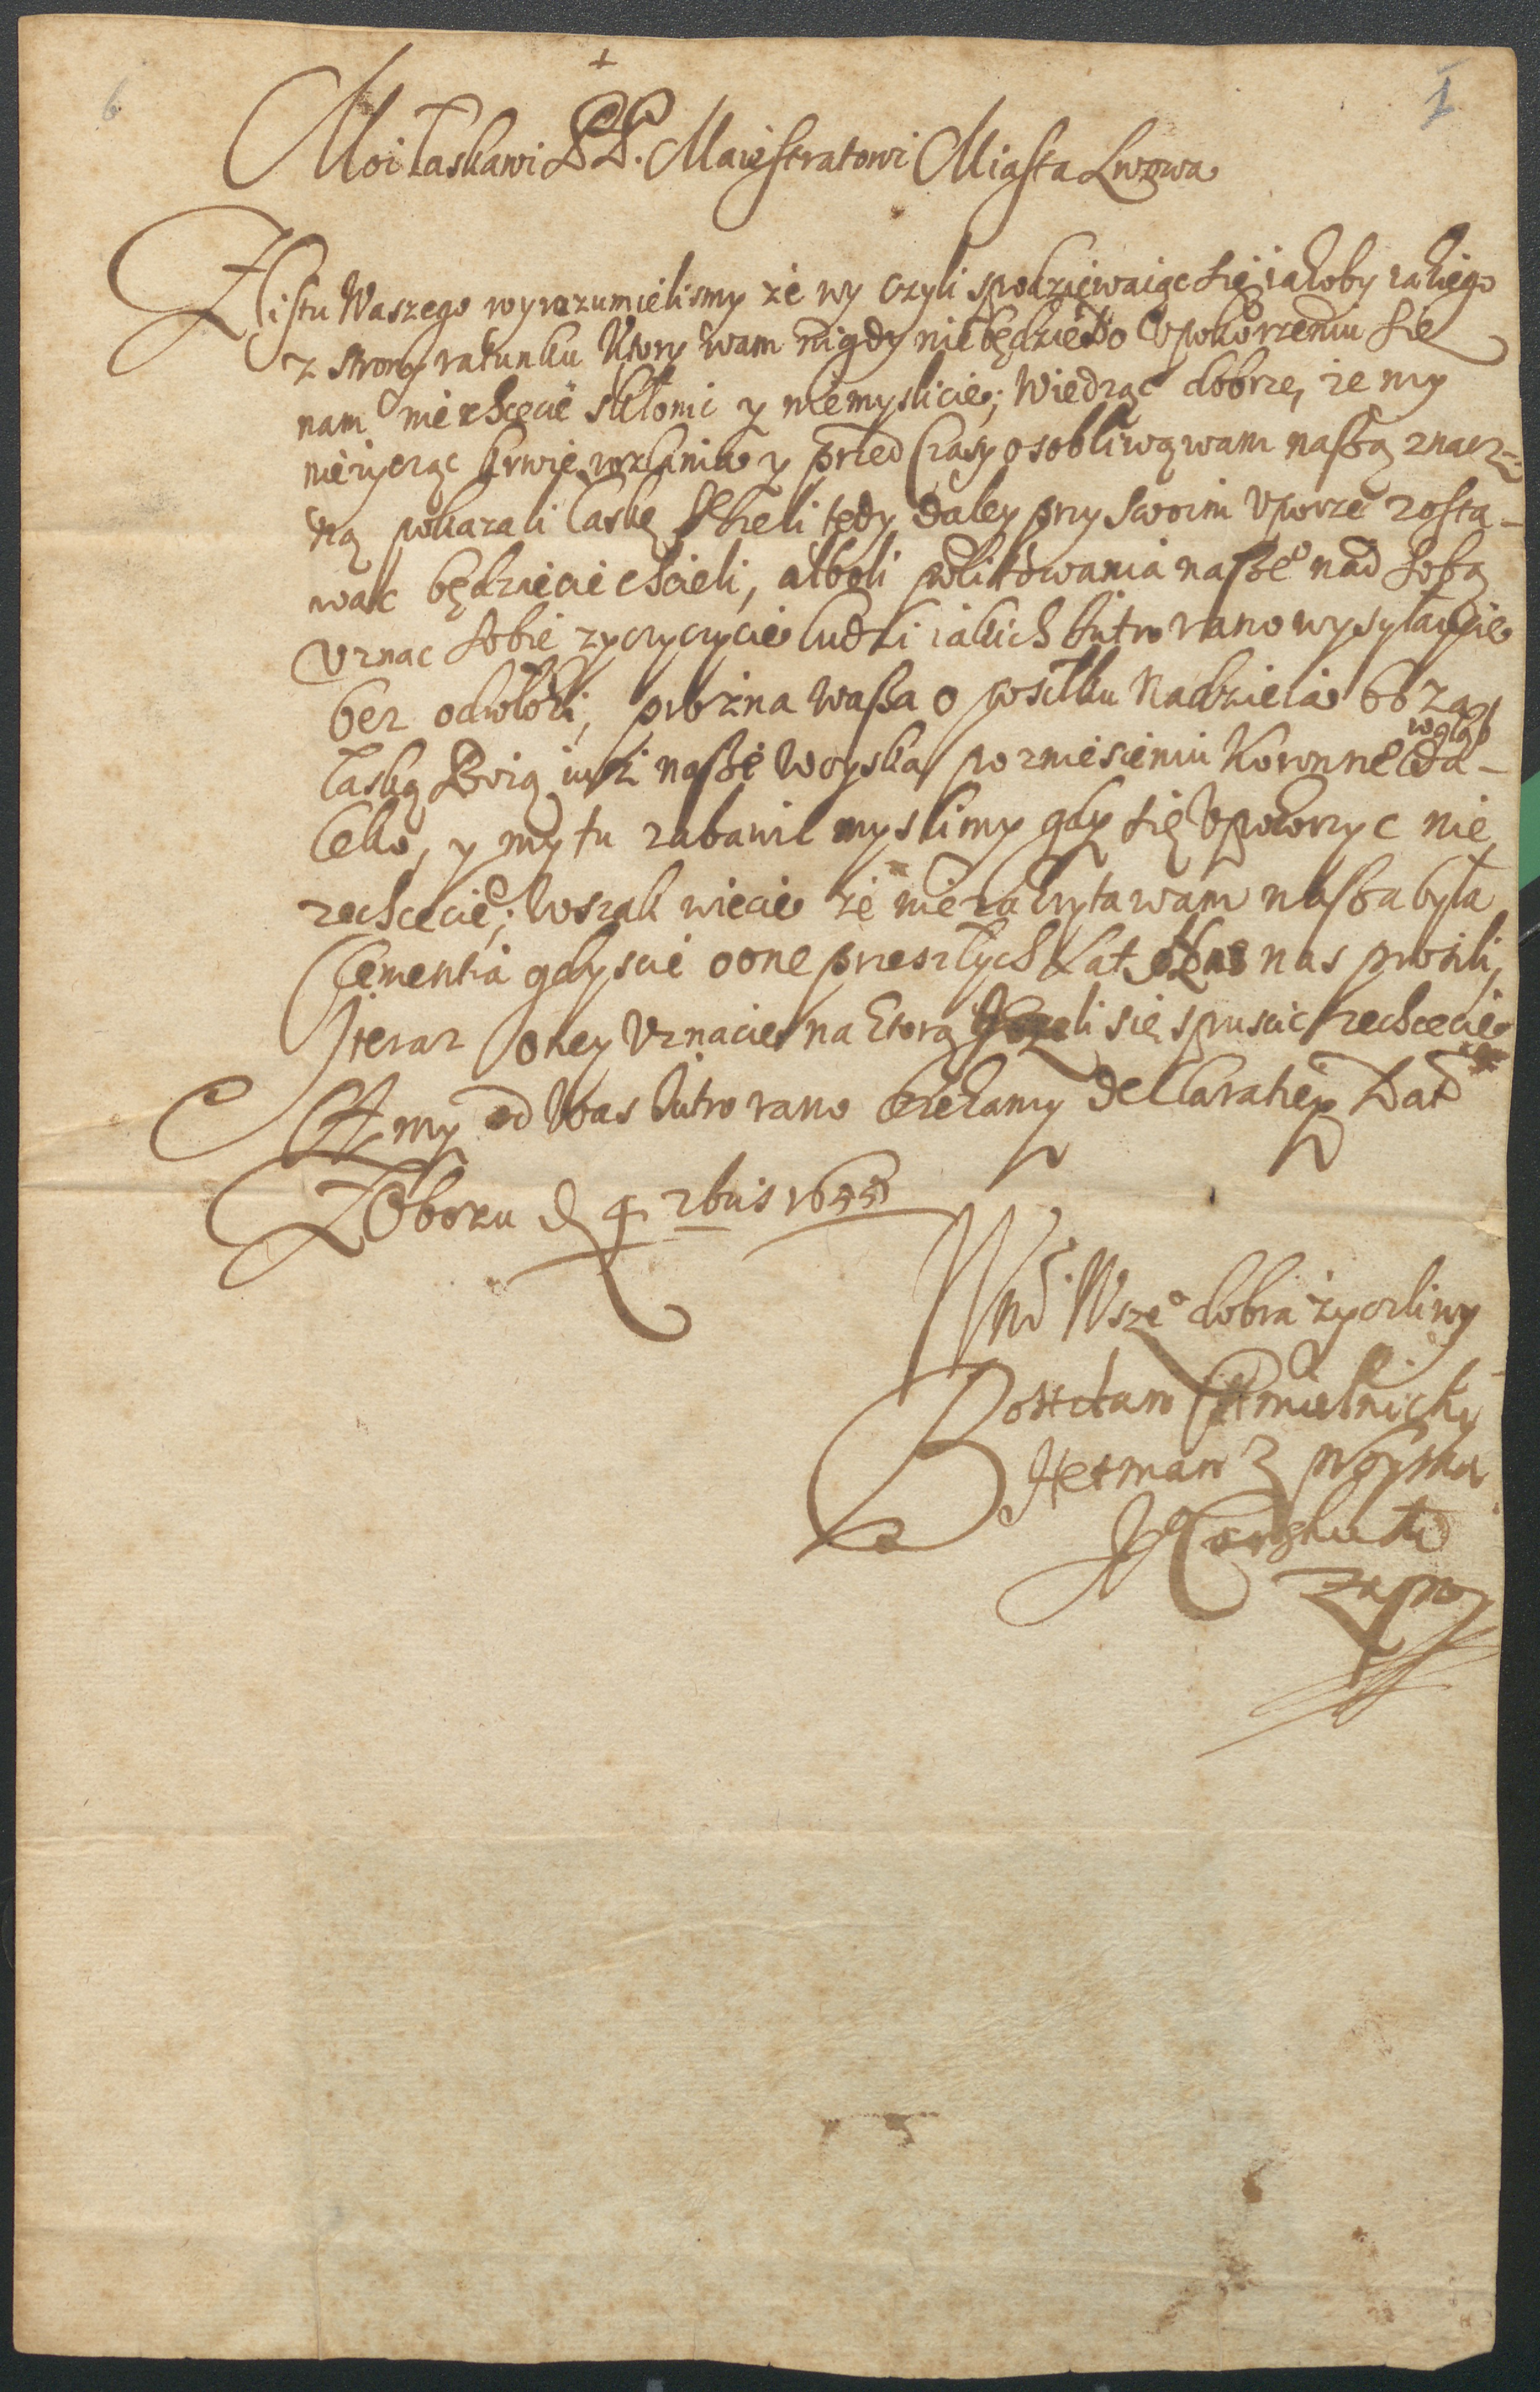 6
1
+
Moi łaskawi PP. Maiestratowi Miasta Lwowa
Z listu Waszego wyrozumielismy że wy czyli spodziewaiąc się iakoby iakiego
z strony ratunku ktory wam nigdy nie będzie do Vpokorzeniu się
nam nie chcecie skłonic y niemyslicie; Wiedząc dobrze, ze my
nieżycząc krwie rozlania y przed Czasy osobliwą wam naszą znacz-
ną pokazali łaskę Jeżeli tedy daley przy swoim Vporze zosta-
wac będziecie chcieli, alboli politowania nasze° nad sobą
Vznac sobie zyczycie ludzi iakich Iutro rano wysyłaycie
bez odwłoki, prożna wasza o posiłku Nadzieia bo za
łaską Bożą iusz nasze Woyska po zniesieniu Koronne° wgłąb da-
leko, y my tu zabawic myslimy gdy się Vpokorzyc nie
zechcecie; wszak wiecie że nie zakryta wam nasza była
Clementia gdyscie o one przeszłych Lat nas prosili,
J teraz oney Vznacie na ktorą Jezeli się spuscic zechcecie
My od Was Iutro rano czekamy declaratiey Dat
Z Obozu d 4 2bris 1655
Wm Wsze° dobra życzliwy
Bohdan Chmielnicky
Hetman z Woyska
J° Carsku W
Zapro